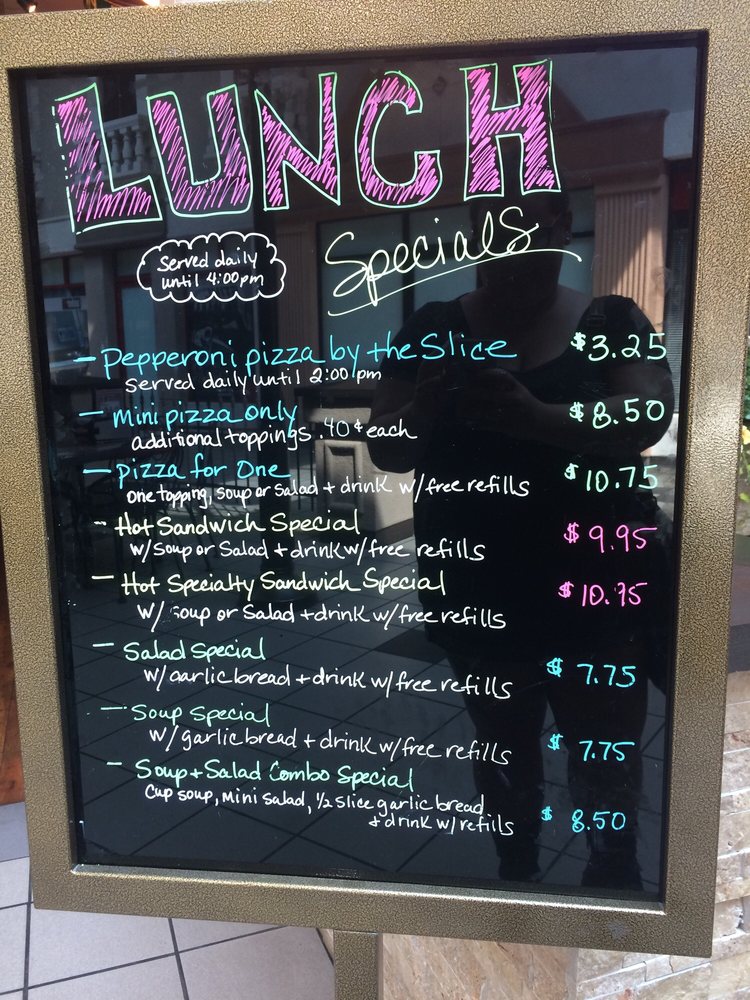 LUNCH
Specials
Served daily
until 4:00pm
- Pepperoni pizza by the Slice $3.25
served daily until 2:00pm
- Mini pizza only $8.50
additional toppings .40¢ each
- Pizza for One $10.75
One topping, soup or Salad + drink w/free refills
- Hot Sandwich Special $9.95
w/soup or Salad + drink w/free refills
- Hot Specialty Sandwich Special $10.75
w/ soup or Salad + drink w/free refills
- Salad Special $7.75
w/garlic bread + drink w/free refills
- Soup Special $7.75
w/garlic bread + drink w/free refills
- Soup + Salad Combo Special
Cup soup, mini salad, 1/2 slice garlic bread
+ drink w/refills $8.50